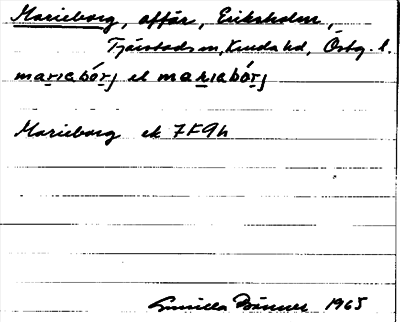 Marieborg, affär, Eriksholm,
Tjärstads sn, Kinda hd, Östg. l.
mariabórj el mariabórj
Marieborg ek 7F9h
Gunilla 1965